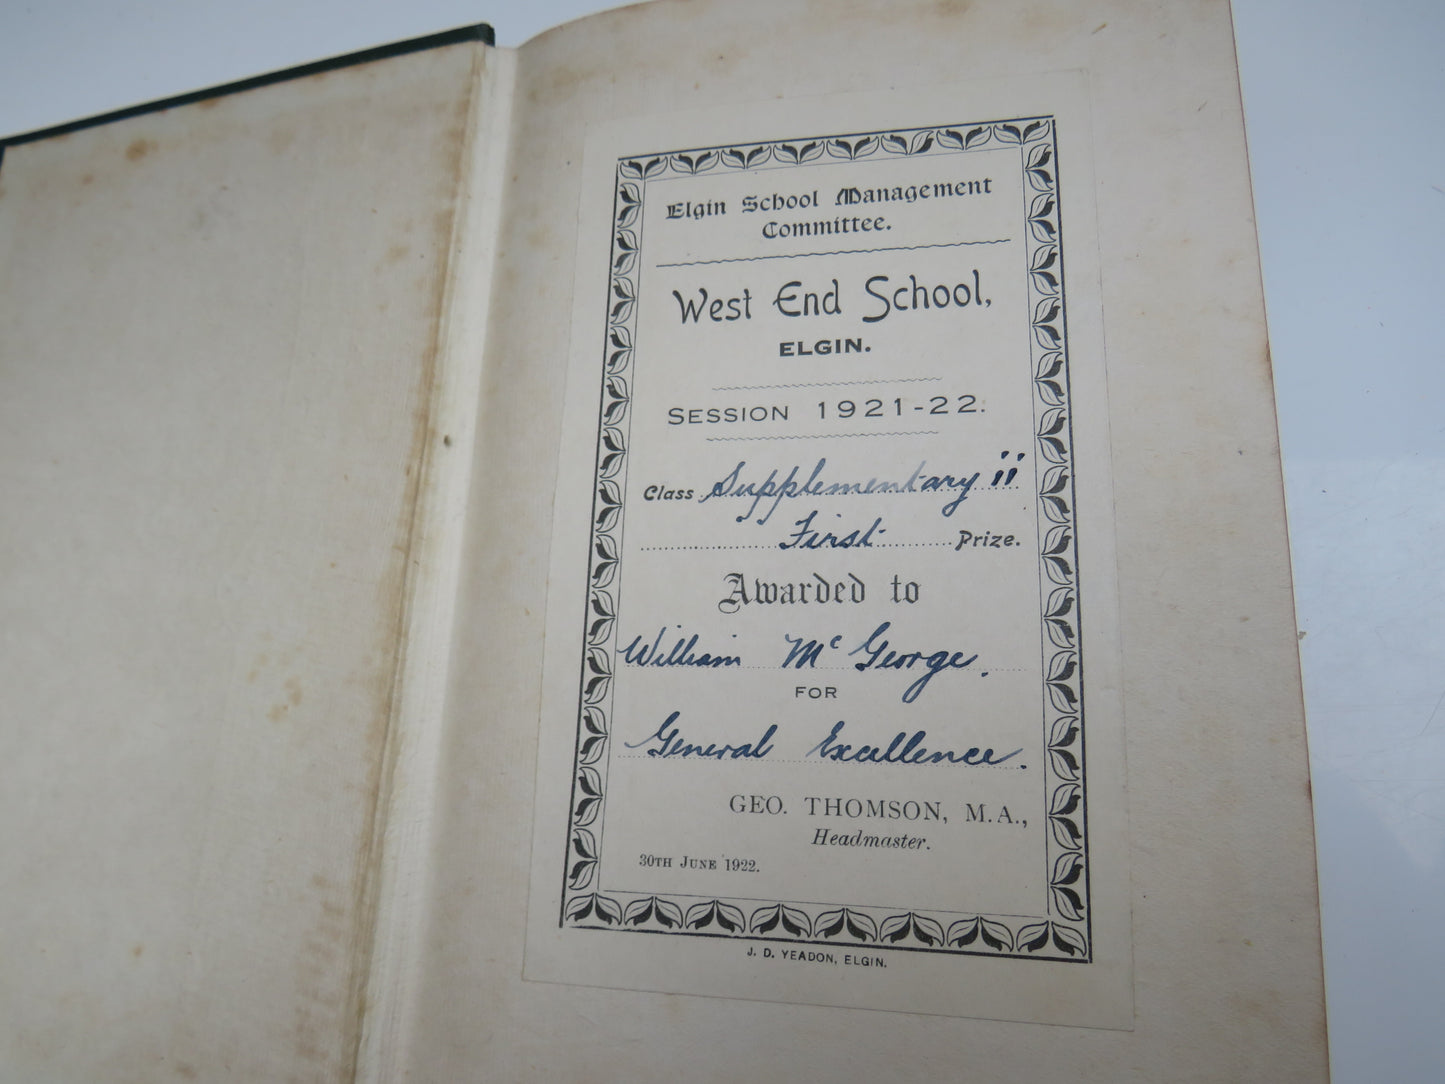 Elgin School Management
Committee.
West End School,
ELGIN.
SESSION 1921-22.
Class Supplementary ii
First Prize.
Awarded to
William Mc George.
FOR
General Excellence.
GEO. THOMSON, M.A.,
Headmaster.
30TH JUNE 1922.
J. D. YEADON, ELGIN.